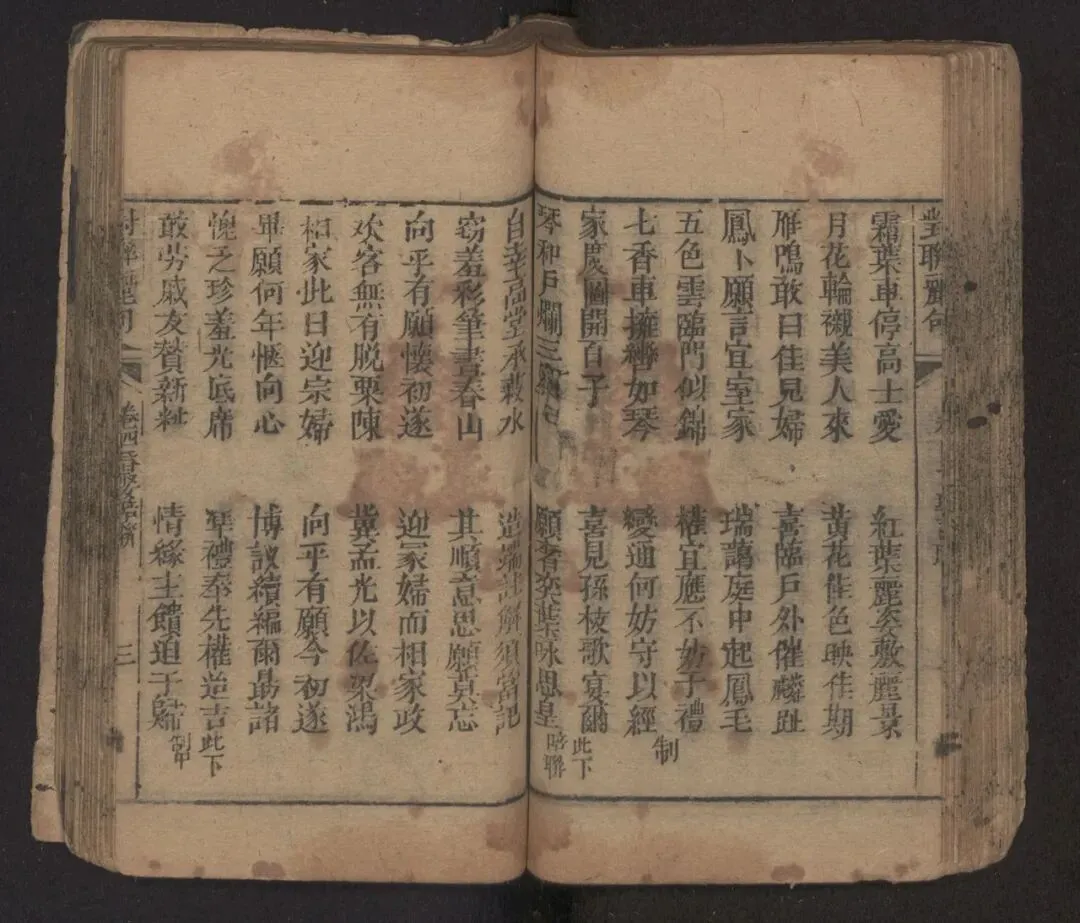 對聯麗句
霜葉車停高士愛 紅葉麗姿敷麗景
月花輪襯美人來 黃花佳色映佳期
雁鳴敢曰佳見婦 喜臨戶外催麟趾
鳳卜願言宜室家 瑞藹庭中起鳳毛
五色雲臨門似錦 權宜應不妨于禮
七香車擁轡如琴 變通何妨守以經 制
家慶圖開百子 喜見孫枝歌宴爾
琴和戶爛三 願看奕葉咏思皇 此下暗聯
自幸高堂承菽水 造端註解須當記
窃羞彩筆畫春山 其順意思願莫忘
向平有願懷初遂 迎家婦而相家政
欢客無有脫粟陳 冀孟光以佐梁鴻
相家此日迎宗婦 向平有願今初遂
畢願何年愜向心 博議續編爾勗諸
愧乏珍羞光底席 舉禮奉先權造吉 此下
敢勞戚友賛新粧 情緣主饋迫于歸 制中
對聯麗句
卷四
三